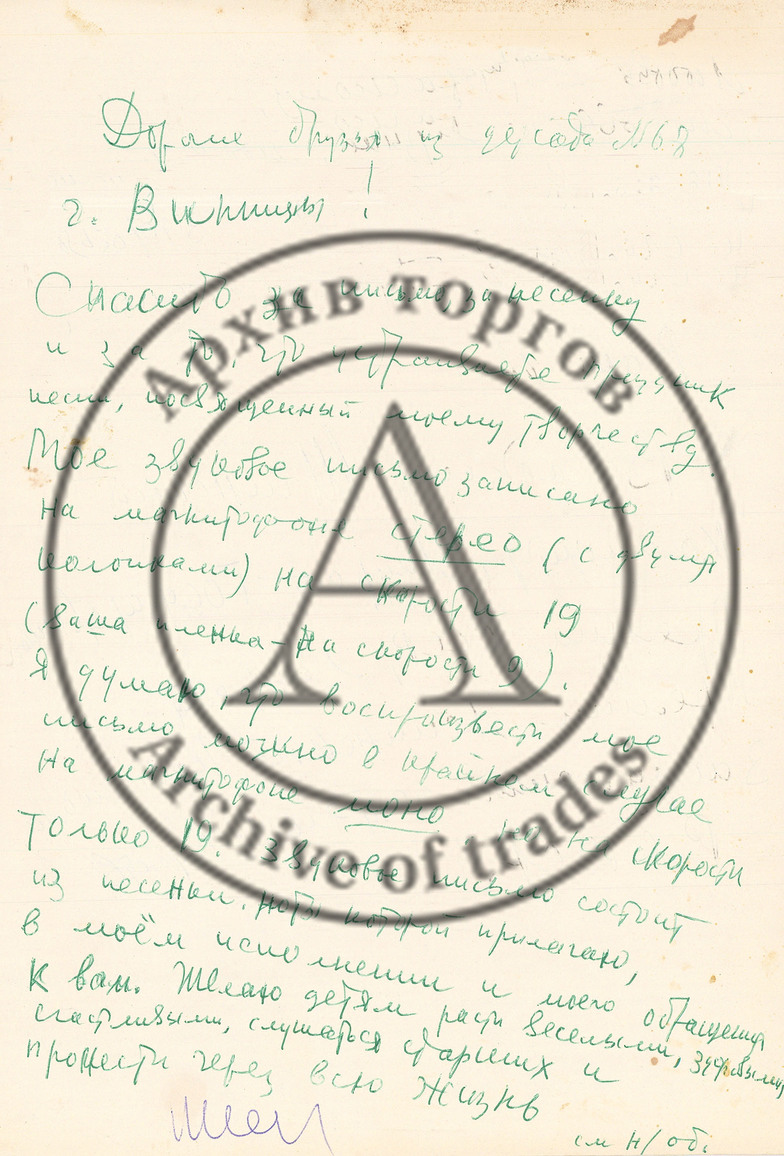 Дорогие друзья из детсада №67
г. Винницы!
Спасибо за письмо, за песенку
и за то, что устраиваете праздник
песни, посвященный моему творчеству.
Моё звуковое письмо записано
на магнитофоне стерео (с двумя
колонками) на скорости 19
(Ваша пленка – на скорости 9).
Я думаю, что воспроизвести мое
письмо можно в крайнем случае
на магнитофоне моно но на скорости
только 19. Звуковое письмо состоит
из песенки, ноты которой прилагаю,
в моём исполнении и моего обращения
к вам. Желаю детям расти веселыми, здоровыми,
счастливыми, слушаться старших и
пронести через всю жизнь
см н/об.
Архив торгов
Archive of trades
А